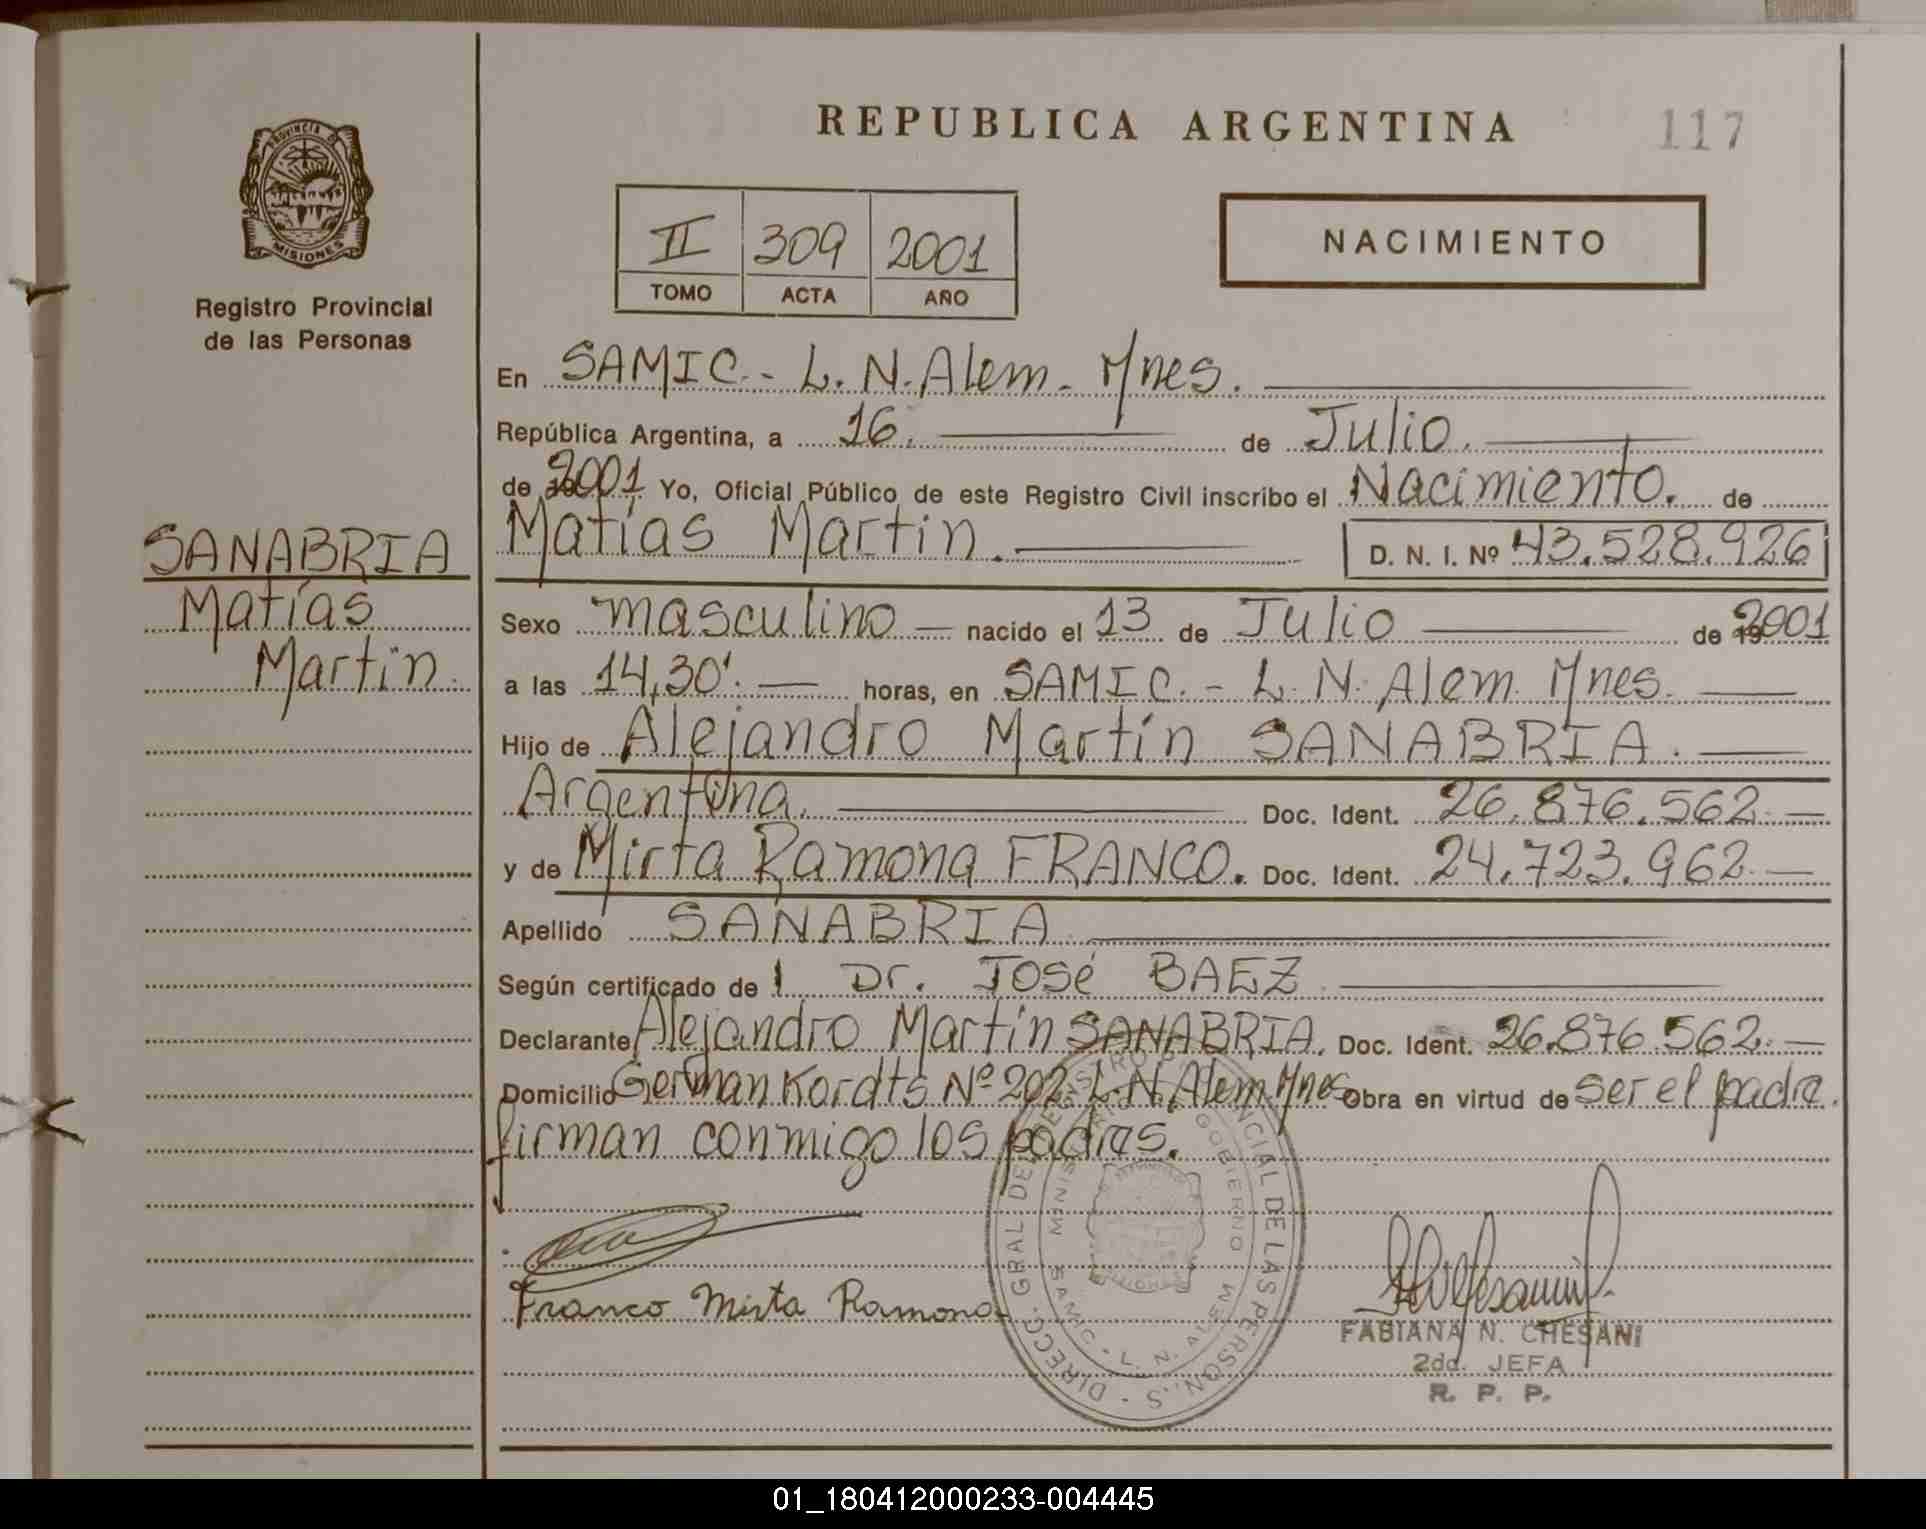 REPUBLICA ARGENTINA
117
PROVINCIA DE
MISIONES
Registro Provincial
de las Personas
II 309 2001
TOMO ACTA AÑO
NACIMIENTO
En SAMIC.- L. N. Alem. Mnes.
República Argentina, a 16. de Julio.
de 2001 Yo, Oficial Público de este Registro Civil inscribo el Nacimiento. de
Matías Martin. D. N. I. Nº 43.528.926
SANABRIA
Matías
Martin.
Sexo masculino nacido el 13 de Julio de 2001
a las 14,30'. horas, en SAMIC. - L. N. Alem. Mnes.
Hijo de Alejandro Martín SANABRIA.
Argentina. Doc. Ident. 26.876.562.
y de Mirta Ramona FRANCO. Doc. Ident. 24.723.962.
Apellido SANABRIA
Según certificado de l Dr. José BAEZ
Declarante Alejandro Martín SANABRIA. Doc. Ident. 26.876.562.
Domicilio German Kordts Nº 202 L.N. Alem. Mnes. Obra en virtud de ser el padre.
firman conmigo los padres.
Franco Mirta Ramona
DIRECC. GRAL DEL REGISTRO PROVINCIAL DE LAS PERSON.S
GOBIERNO
SAMIC - L. N. ALEM
FABIANA N. CHESANI
2da. JEFA
R. P. P.
01_180412000233-004445